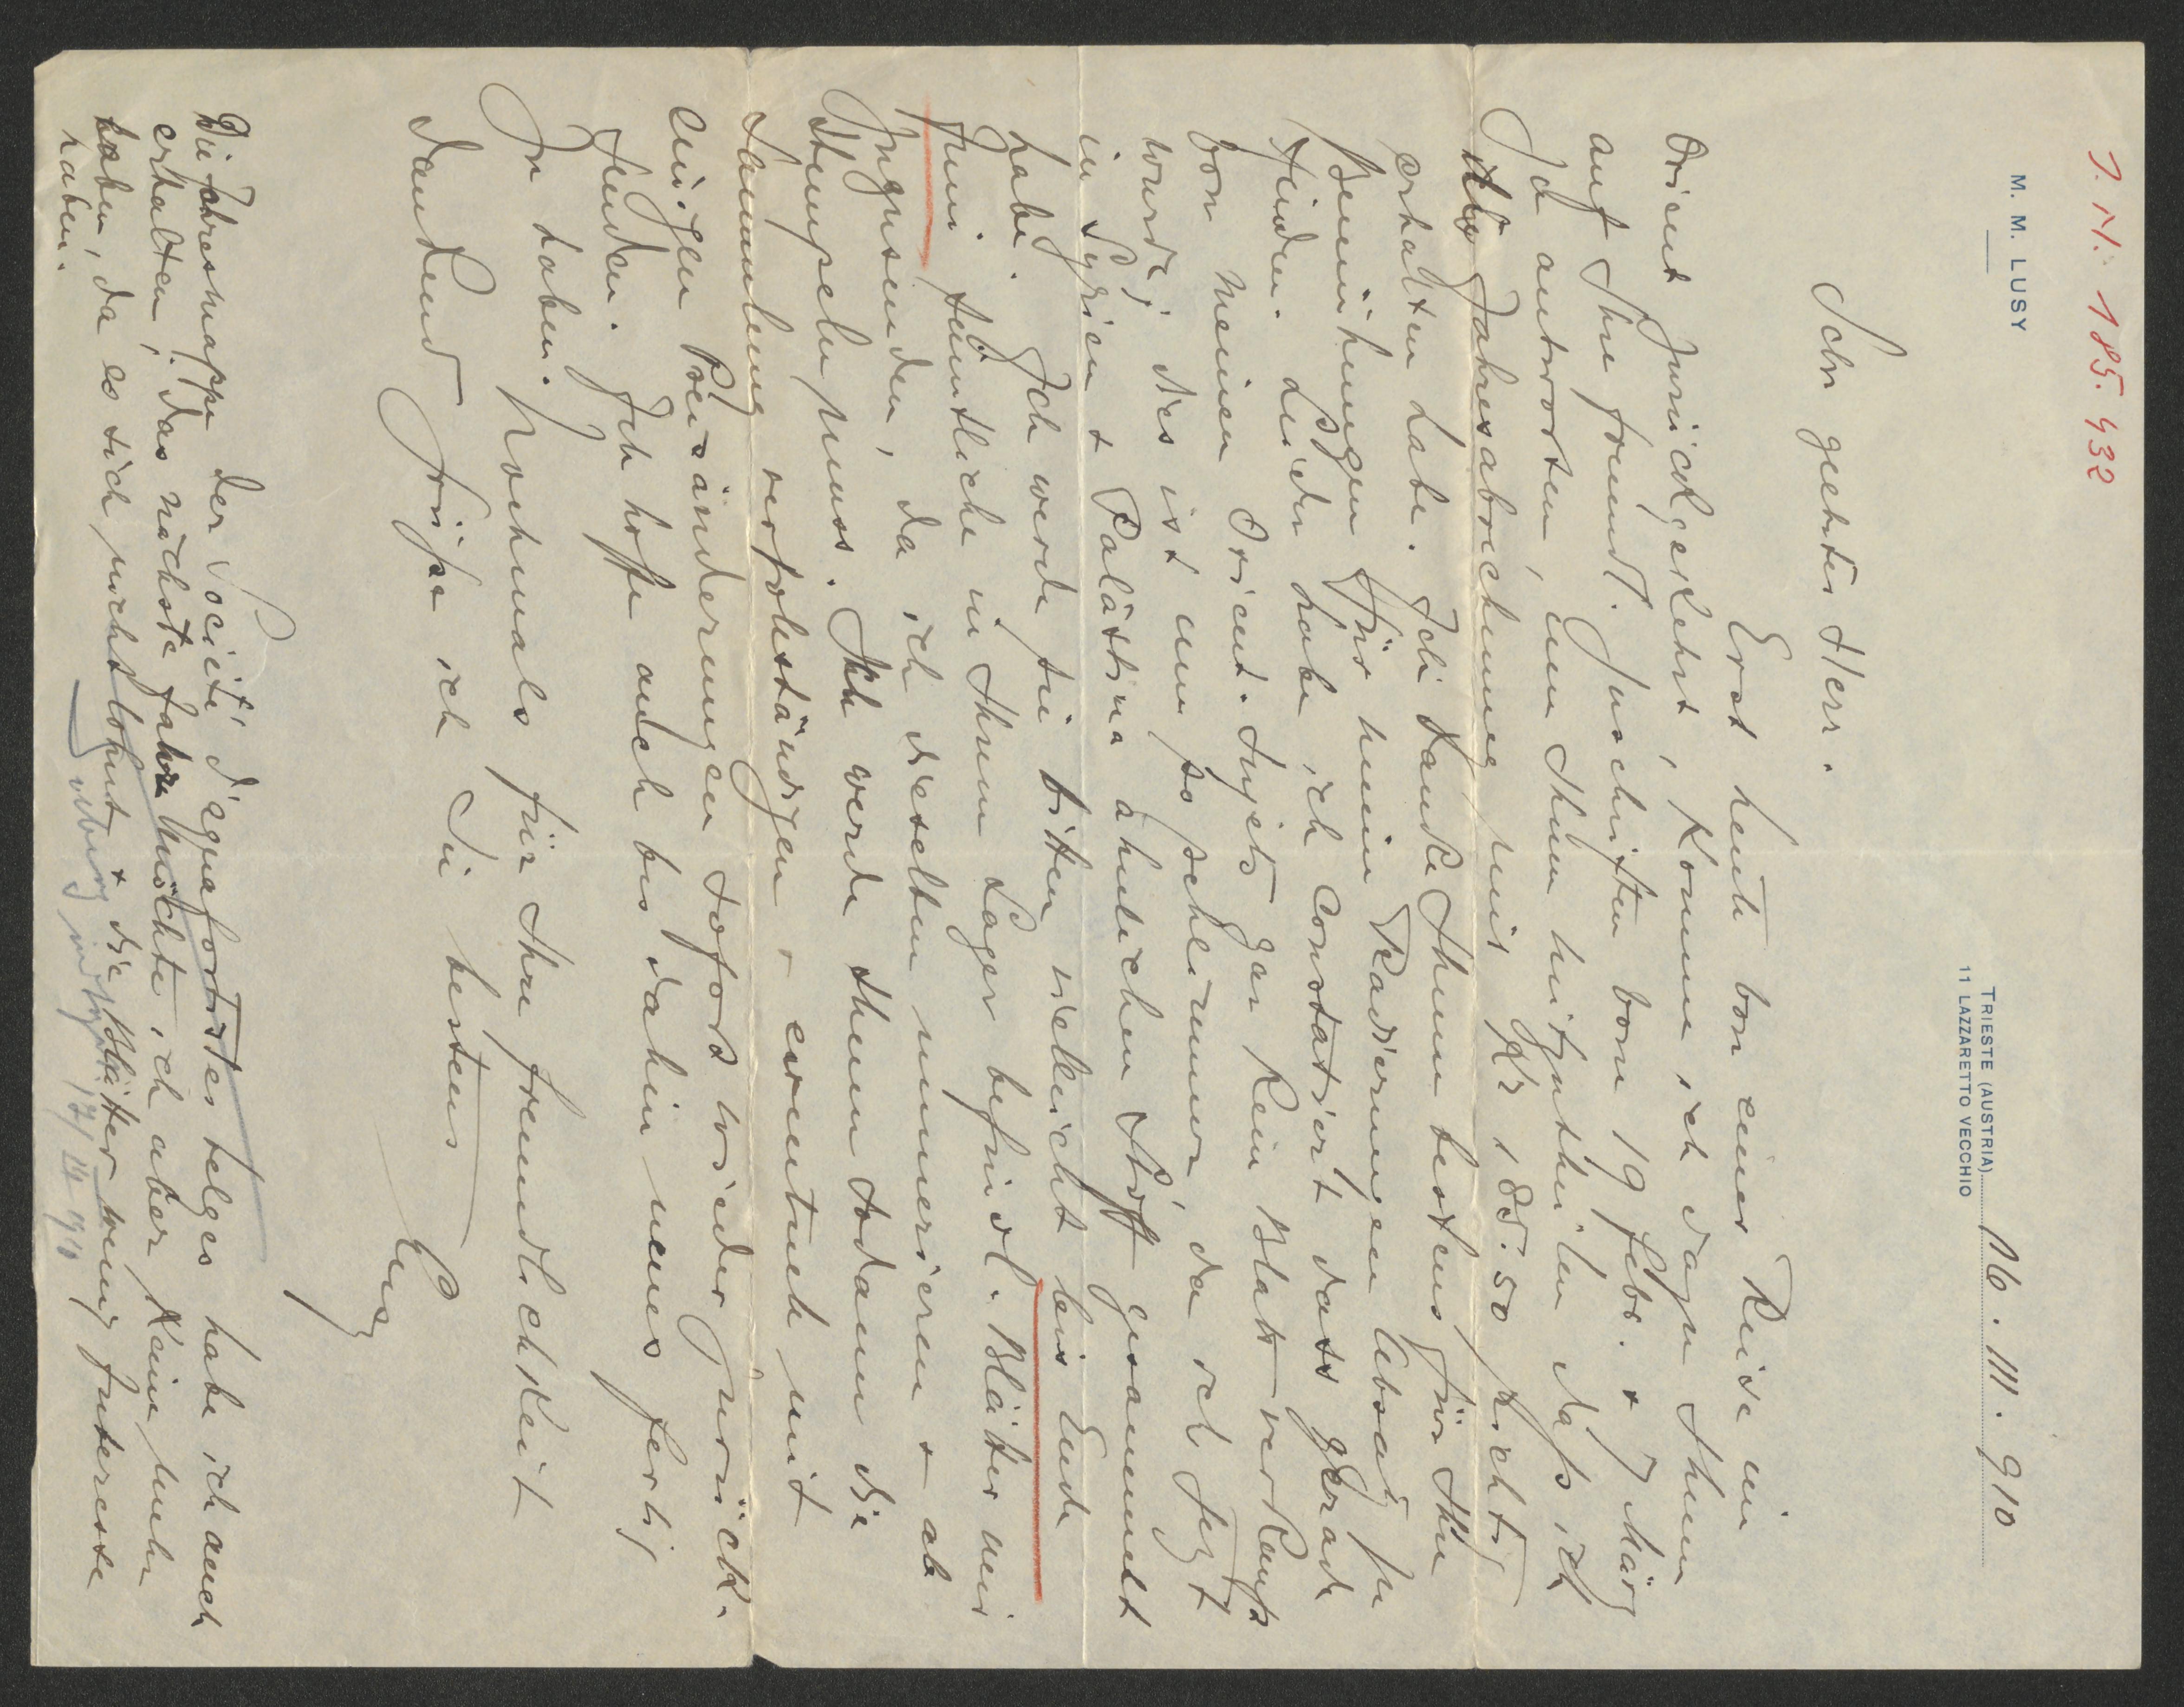 J. N. 185.932
M. M. LUSY
TRIESTE (AUSTRIA) 16. III. 910
11 LAZZARETTO VECCHIO
Sehr geehrter Herr.
Erst heute von einer Reise im
Orient zurückgekehrt, komme ich dazu Ihnen
auf Ihre freundl. Zuschriften vom 19 febr. + 7 März
zu antworten, um Ihnen mitzutheilen daß ich
die Jahresabrechnung mit Kr 185.50 richtig
erhalten habe. Ich danke Ihnen bestens für Ihre
Bemühungen für meine Radierungen Absatz zu
finden. Leider habe ich constatiert dass gerade
von meinen Orient-Sujets gar kein Blatt verkauft
wurde; dies ist um so schlimmer, da ich jetzt
in Syrien + Palästina ähnlichen Stoff gesammelt
habe. Ich werde sie bitten vieleicht bis Ende
Juni sämtliche in Ihrem Lager befindl. Blätter mir
zuzusenden, da ich dieselben nummerieren + ab
stempeln muss. Ich werde Ihnen sodann die
Sammlung vervollständigen + eventuell mit
einigen Preisänderungen sofort wieder zurück-
senden. Ich hoffe auch bis dahin neues fertig
zu haben. Nochmals für Ihre freundlichkeit
dankend grüße ich Sie bestens
Lusy
Die Jahresmappe der Société d'aquafortistes belges habe ich auch
erhalten; das nächste Jahr möchte ich aber keine mehr
haben, da es sich nicht lohnt + die Blätter wenig Interesse
haben.
17/III 1910